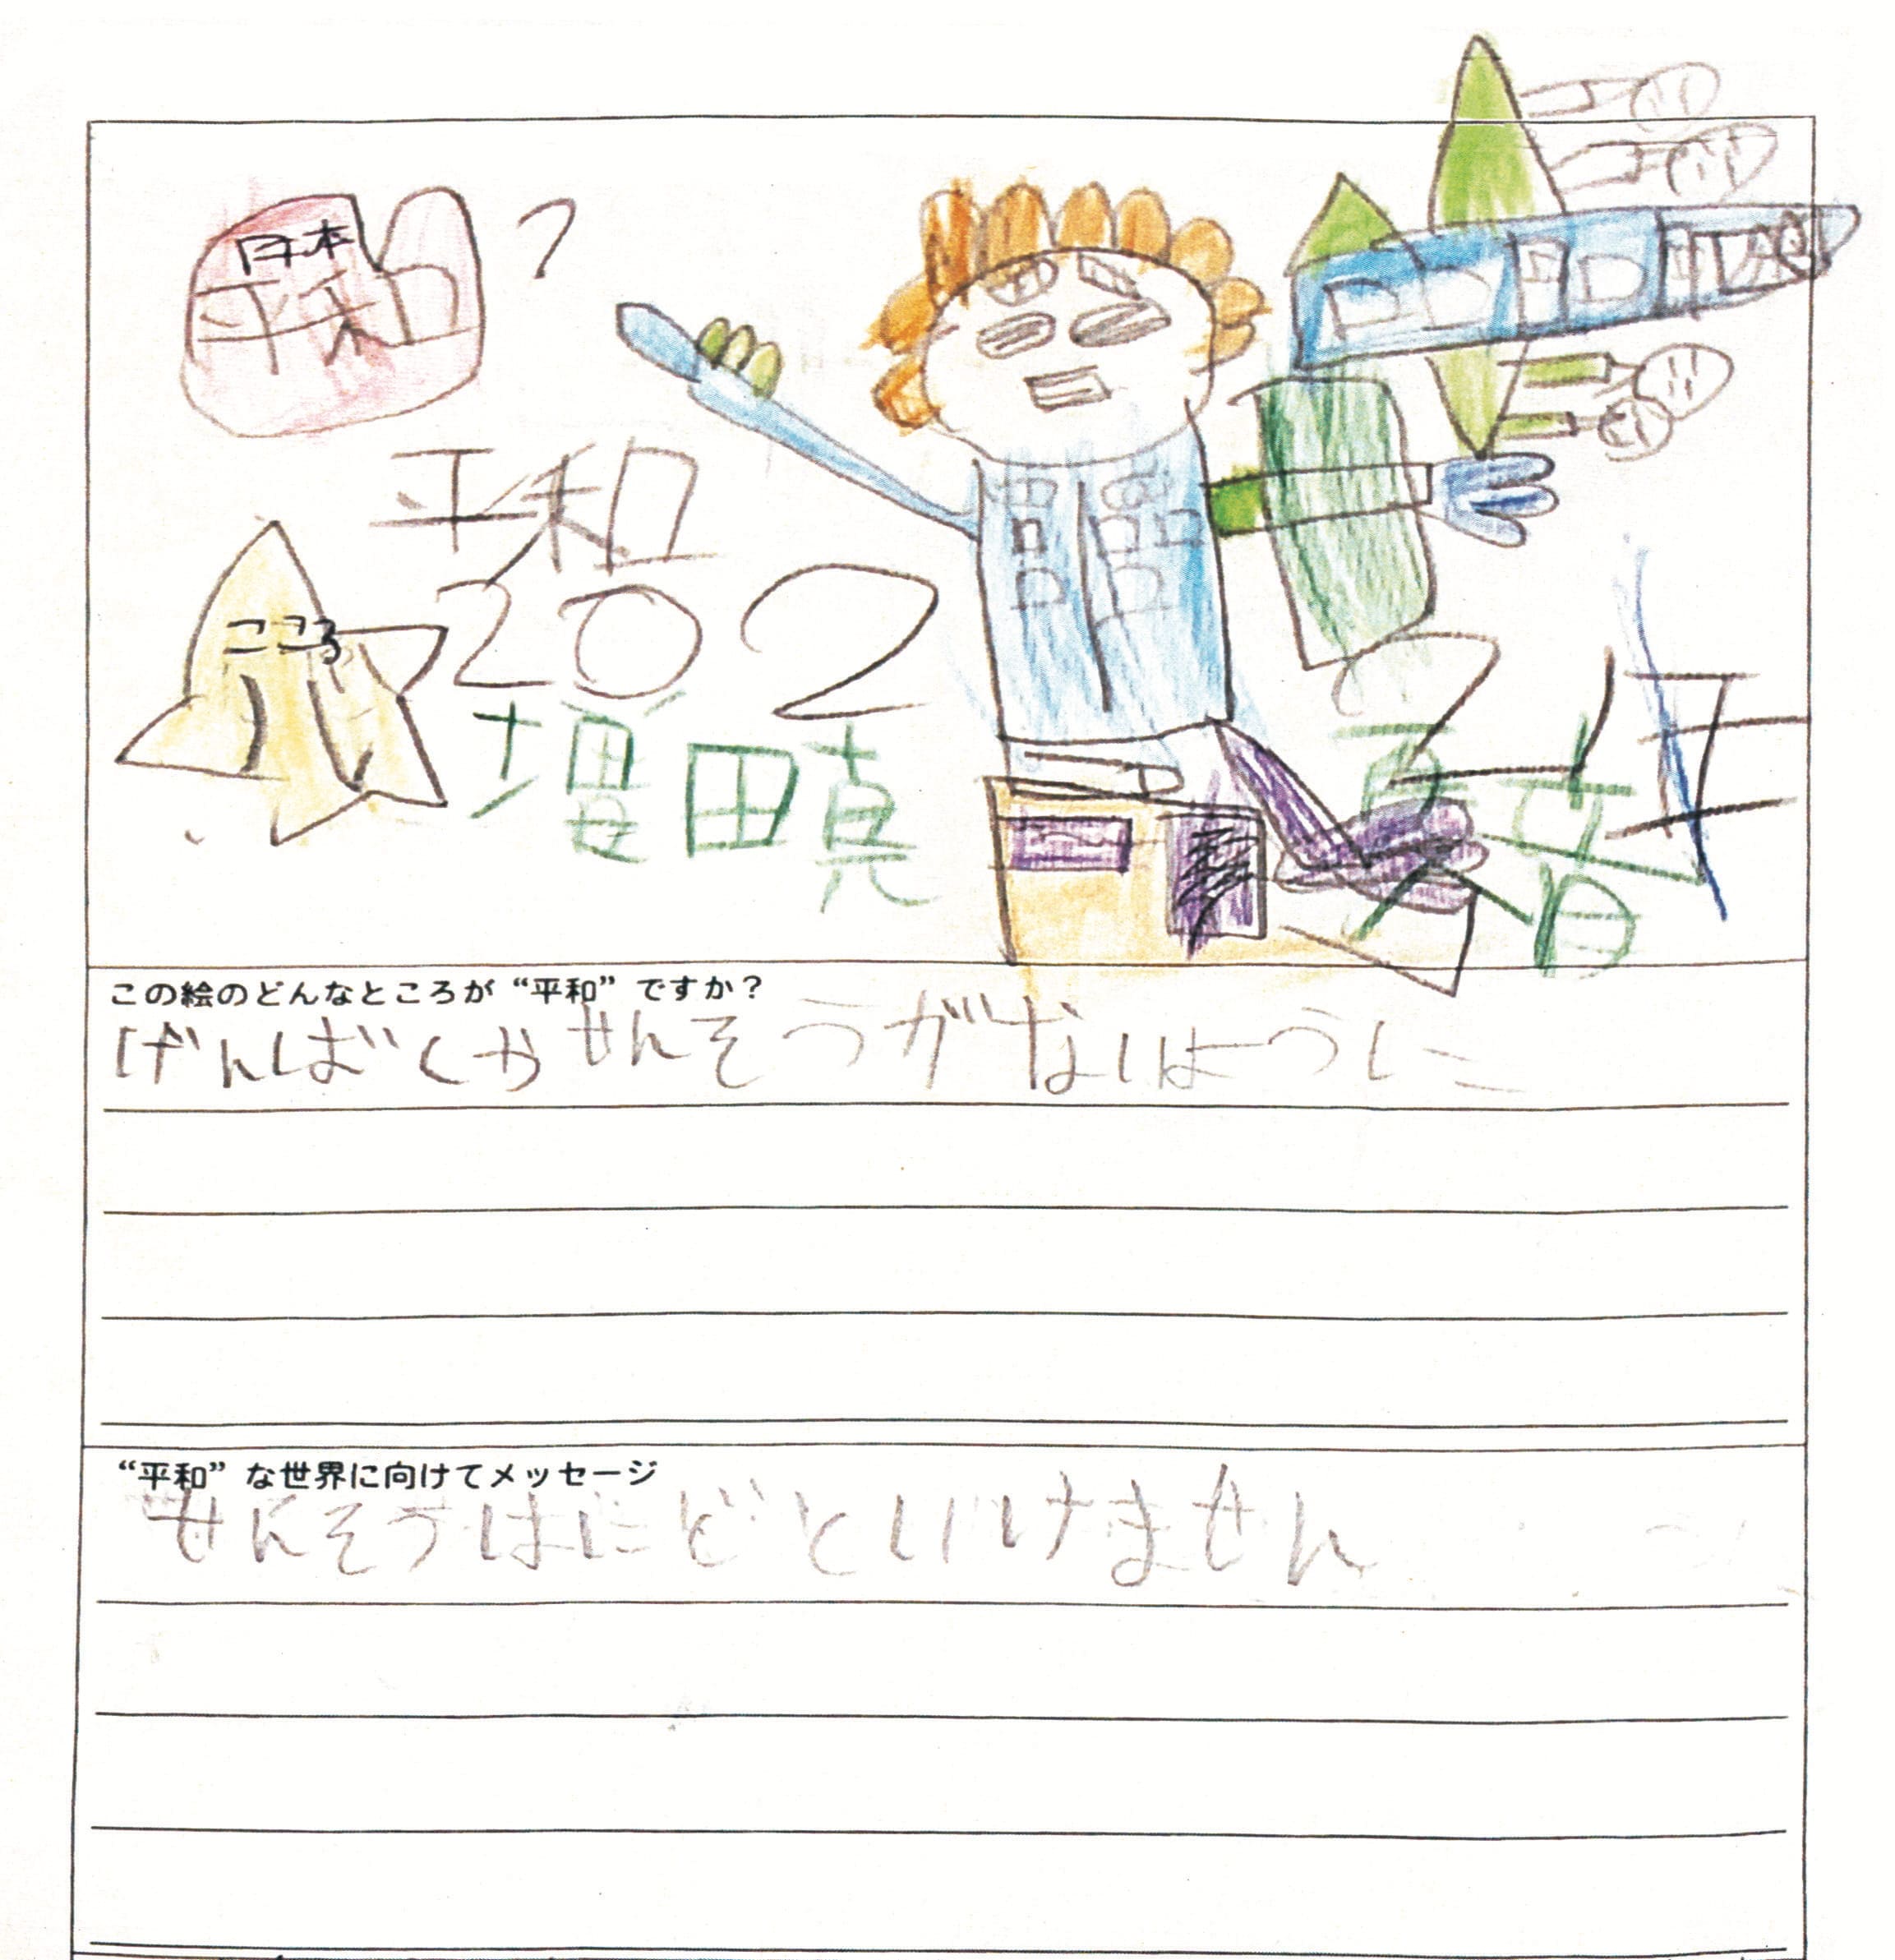 日本
平和
?
平和
2022年
こころ
田真
この絵のどんなところが“平和”ですか?
げんばくやせんそうがないように
“平和”な世界に向けてメッセージ
せんそうはにどといけません